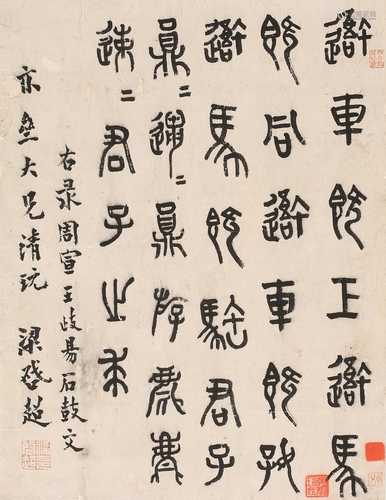 吾車既工吾馬
既同吾車既好
吾馬既𩣡君子
員=邋=員斿麀鹿
速=君子之求
右录周宣王岐陽石鼓文
亦大兄清玩 梁啟超